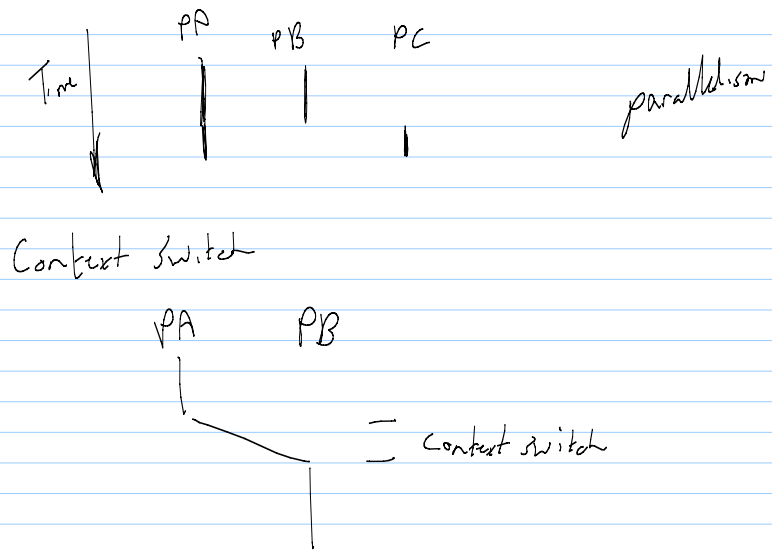 PA PB PC
Time
parallelism
Context switch
PA PB
Context switch